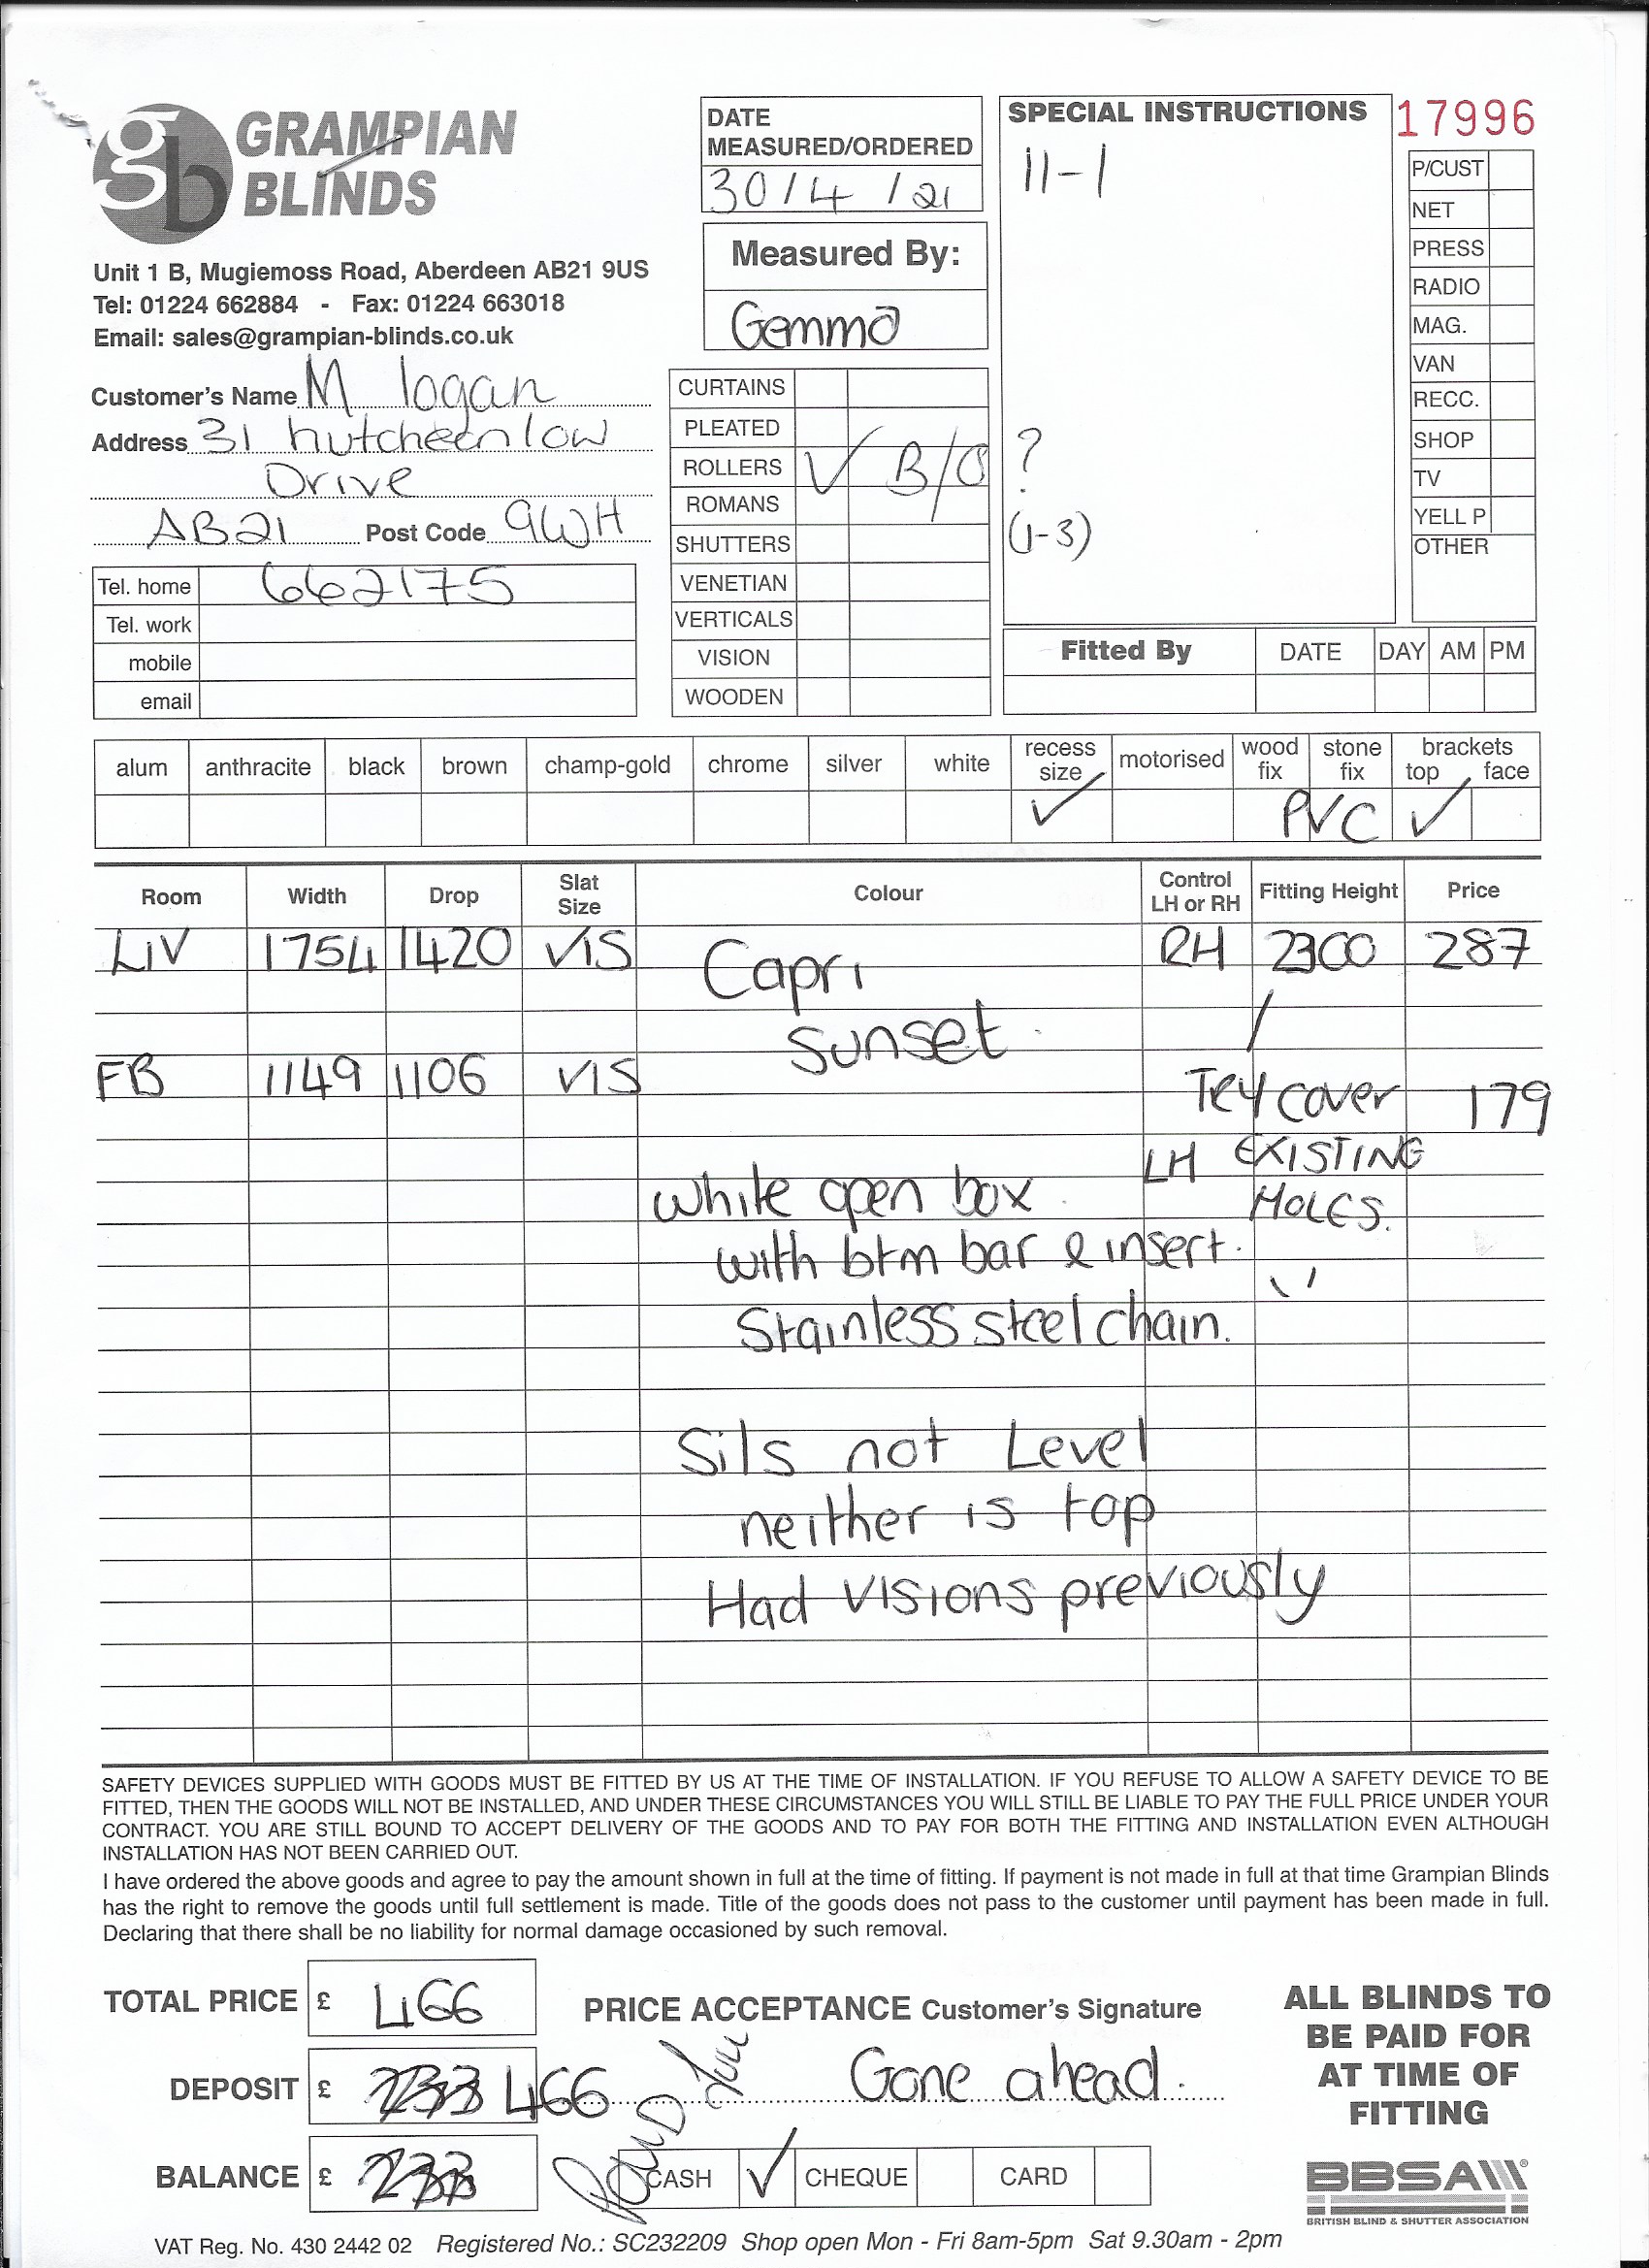 gb GRAMPIAN
BLINDS
Unit 1 B, Mugiemoss Road, Aberdeen AB21 9US
Tel: 01224 662884 - Fax: 01224 663018
Email: sales@grampian-blinds.co.uk
Customer's Name M logan
Address 31 hutcheon low
Drive
AB21 Post Code 9WH
Tel. home 662175
Tel. work
mobile
email
DATE
MEASURED/ORDERED
30/4/21
Measured By:
Gemma
CURTAINS
PLEATED
ROLLERS ✓ B/O
ROMANS
SHUTTERS
VENETIAN
VERTICALS
VISION
WOODEN
SPECIAL INSTRUCTIONS
11-1
?
(1-3)
17996
P/CUST
NET
PRESS
RADIO
MAG.
VAN
RECC.
SHOP
TV
YELL P
OTHER
Fitted By DATE DAY AM PM
alum anthracite black brown champ-gold chrome silver white recess size motorised wood fix stone fix brackets top face
✓ PVC ✓
Room Width Drop Slat Size Colour Control LH or RH Fitting Height Price
LIV 1754 1420 VIS Capri RH 2300 287
sunset
FB 1149 1106 VIS TRY COVER 179
LH EXISTING
White open box HOLES.
with btm bar & insert.
Stainless steel chain.
Sils not Level
neither is top
Had VISIONS previously
SAFETY DEVICES SUPPLIED WITH GOODS MUST BE FITTED BY US AT THE TIME OF INSTALLATION. IF YOU REFUSE TO ALLOW A SAFETY DEVICE TO BE
FITTED, THEN THE GOODS WILL NOT BE INSTALLED, AND UNDER THESE CIRCUMSTANCES YOU WILL STILL BE LIABLE TO PAY THE FULL PRICE UNDER YOUR
CONTRACT. YOU ARE STILL BOUND TO ACCEPT DELIVERY OF THE GOODS AND TO PAY FOR BOTH THE FITTING AND INSTALLATION EVEN ALTHOUGH
INSTALLATION HAS NOT BEEN CARRIED OUT.
I have ordered the above goods and agree to pay the amount shown in full at the time of fitting. If payment is not made in full at that time Grampian Blinds
has the right to remove the goods until full settlement is made. Title of the goods does not pass to the customer until payment has been made in full.
Declaring that there shall be no liability for normal damage occasioned by such removal.
TOTAL PRICE £ 466
DEPOSIT £ 233 466
BALANCE £ 233
PRICE ACCEPTANCE Customer's Signature
Gone ahead.
CASH ✓ CHEQUE CARD
ALL BLINDS TO
BE PAID FOR
AT TIME OF
FITTING
BBSA
BRITISH BLIND & SHUTTER ASSOCIATION
VAT Reg. No. 430 2442 02 Registered No.: SC232209 Shop open Mon - Fri 8am-5pm Sat 9.30am - 2pm